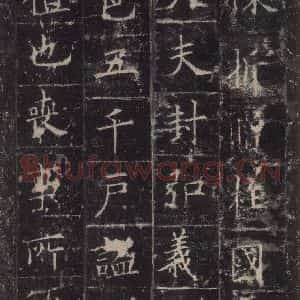 柱國
夫封如義
邑五千戶謚
也喪事所
Shufawang.CN